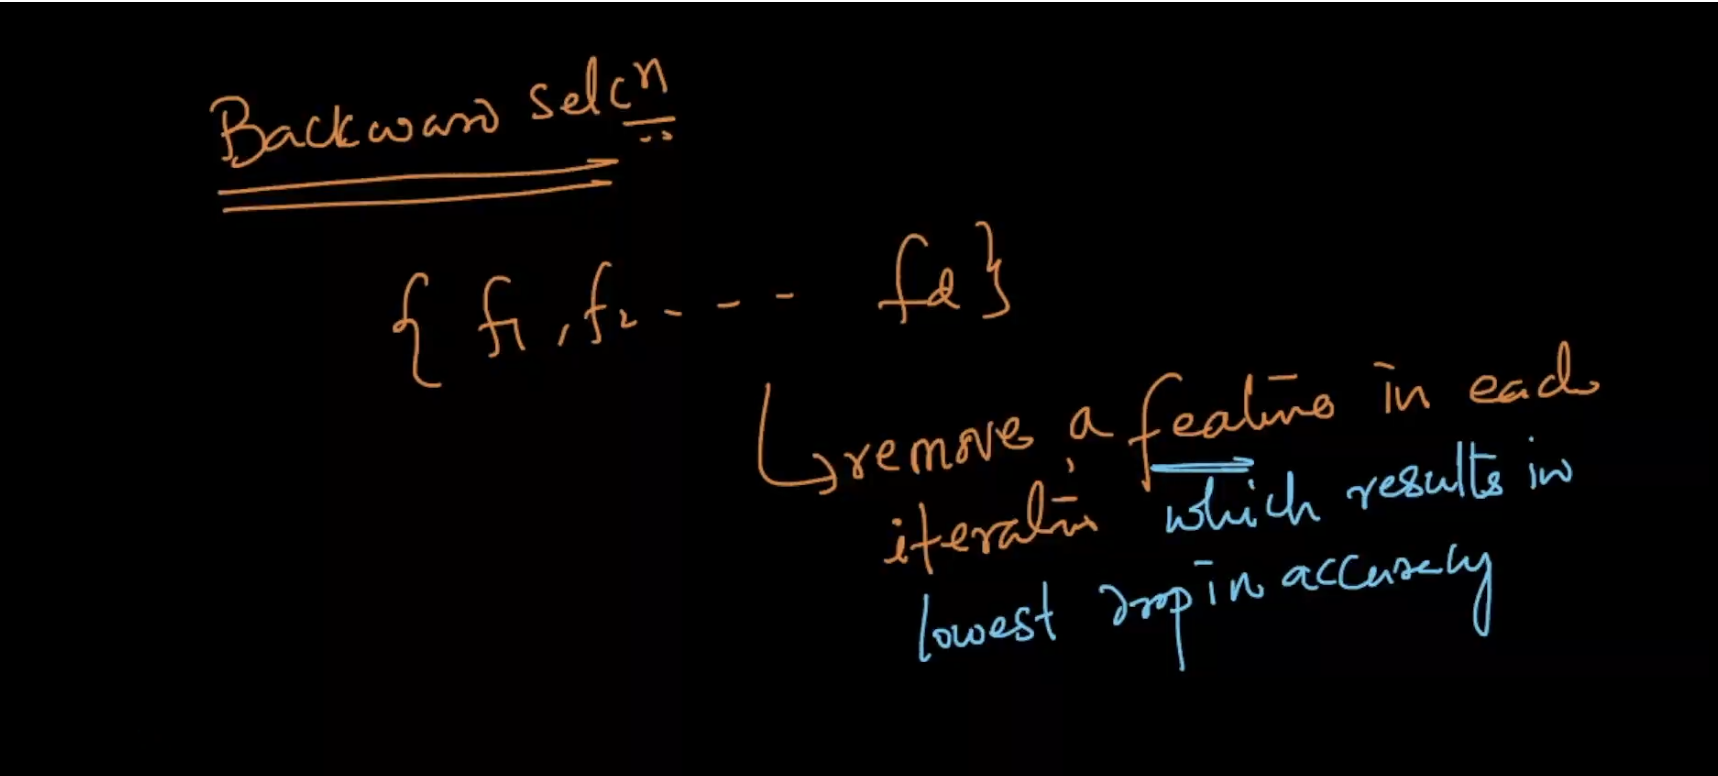 Backward selcn
{ f1, f2 - - - - fd }
remove a feature in each
iteration which results in
lowest drop in accuracy